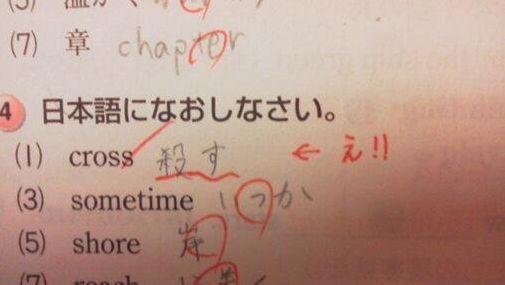 (7) 章 chapter
4 日本語になおしなさい。
(1) cross 殺す ← え!!
(3) sometime いつか
(5) shore 岸
(7)